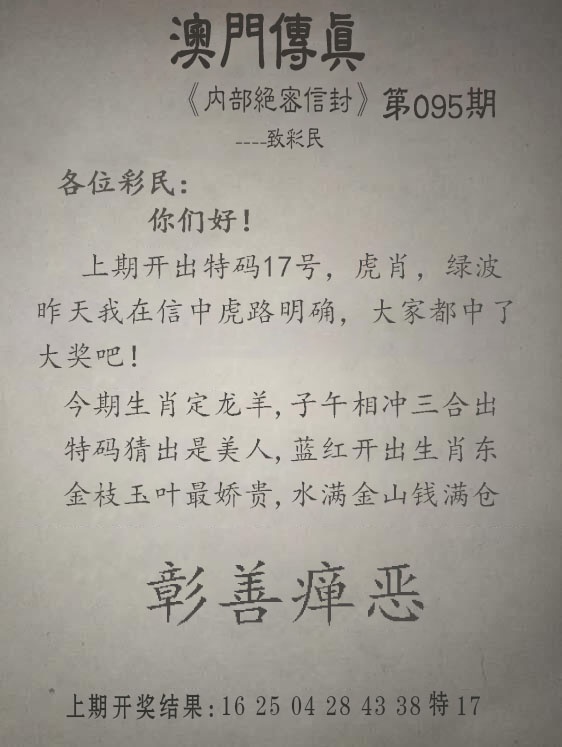 澳門傳真
《内部絕密信封》第095期
----致彩民
各位彩民：
你们好！
上期开出特码17号，虎肖，绿波
昨天我在信中虎路明确，大家都中了
大奖吧！
今期生肖定龙羊,子午相冲三合出
特码猜出是美人,蓝红开出生肖东
金枝玉叶最娇贵,水满金山钱满仓
彰善瘅恶
上期开奖结果:16 25 04 28 43 38 特 17